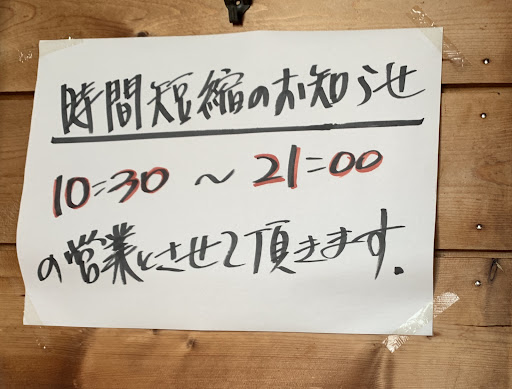 時間短縮のお知らせ
10:30 ～ 21:00
の営業とさせて頂きます.